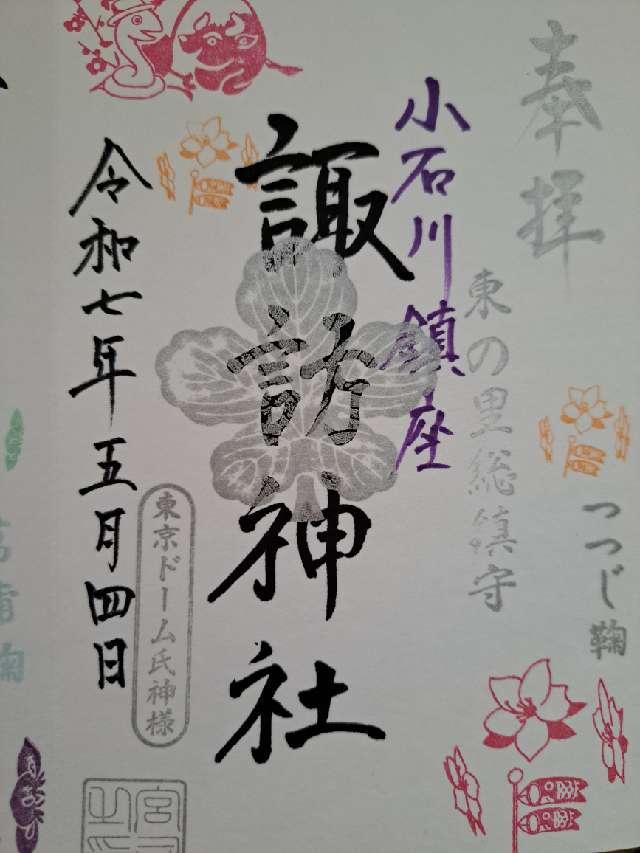 奉拝
つつじ鞠
東の里総鎮守
小石川鎮座
諏訪神社
東京ドーム氏神様
令和七年五月四日